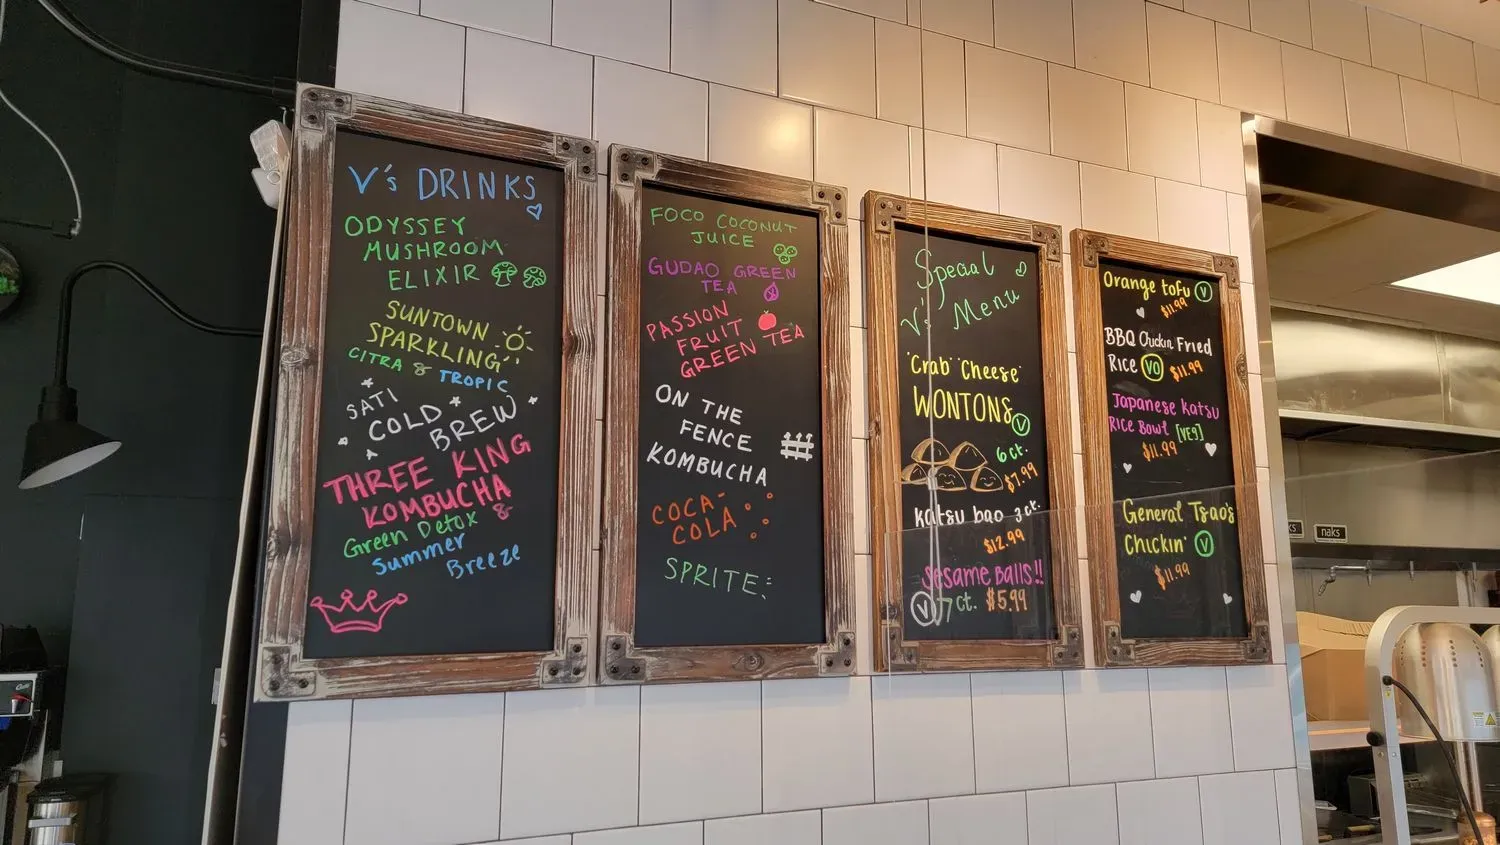 V's DRINKS
ODYSSEY
MUSHROOM
ELIXIR
SUNTOWN
SPARKLING
CITRA & TROPIC
SATI
COLD
BREW
THREE KING
KOMBUCHA
Green Detox &
Summer
Breeze
FOCO COCONUT
JUICE
GUDAO GREEN
TEA
PASSION
FRUIT
GREEN TEA
ON THE
FENCE
KOMBUCHA
COCA-
COLA
SPRITE
Special
V's Menu
"Crab" "Cheese"
WONTONS V
6 ct.
$7.99
katsu bao 3 ct.
$12.99
Sesame Balls!!
V 7 ct. $5.99
Orange tofu V
$11.99
BBQ Chickin Fried
Rice VO $11.99
Japanese Katsu
Rice Bowl [VEG]
$11.99
General Tsao's
Chickin' V
$11.99
naks